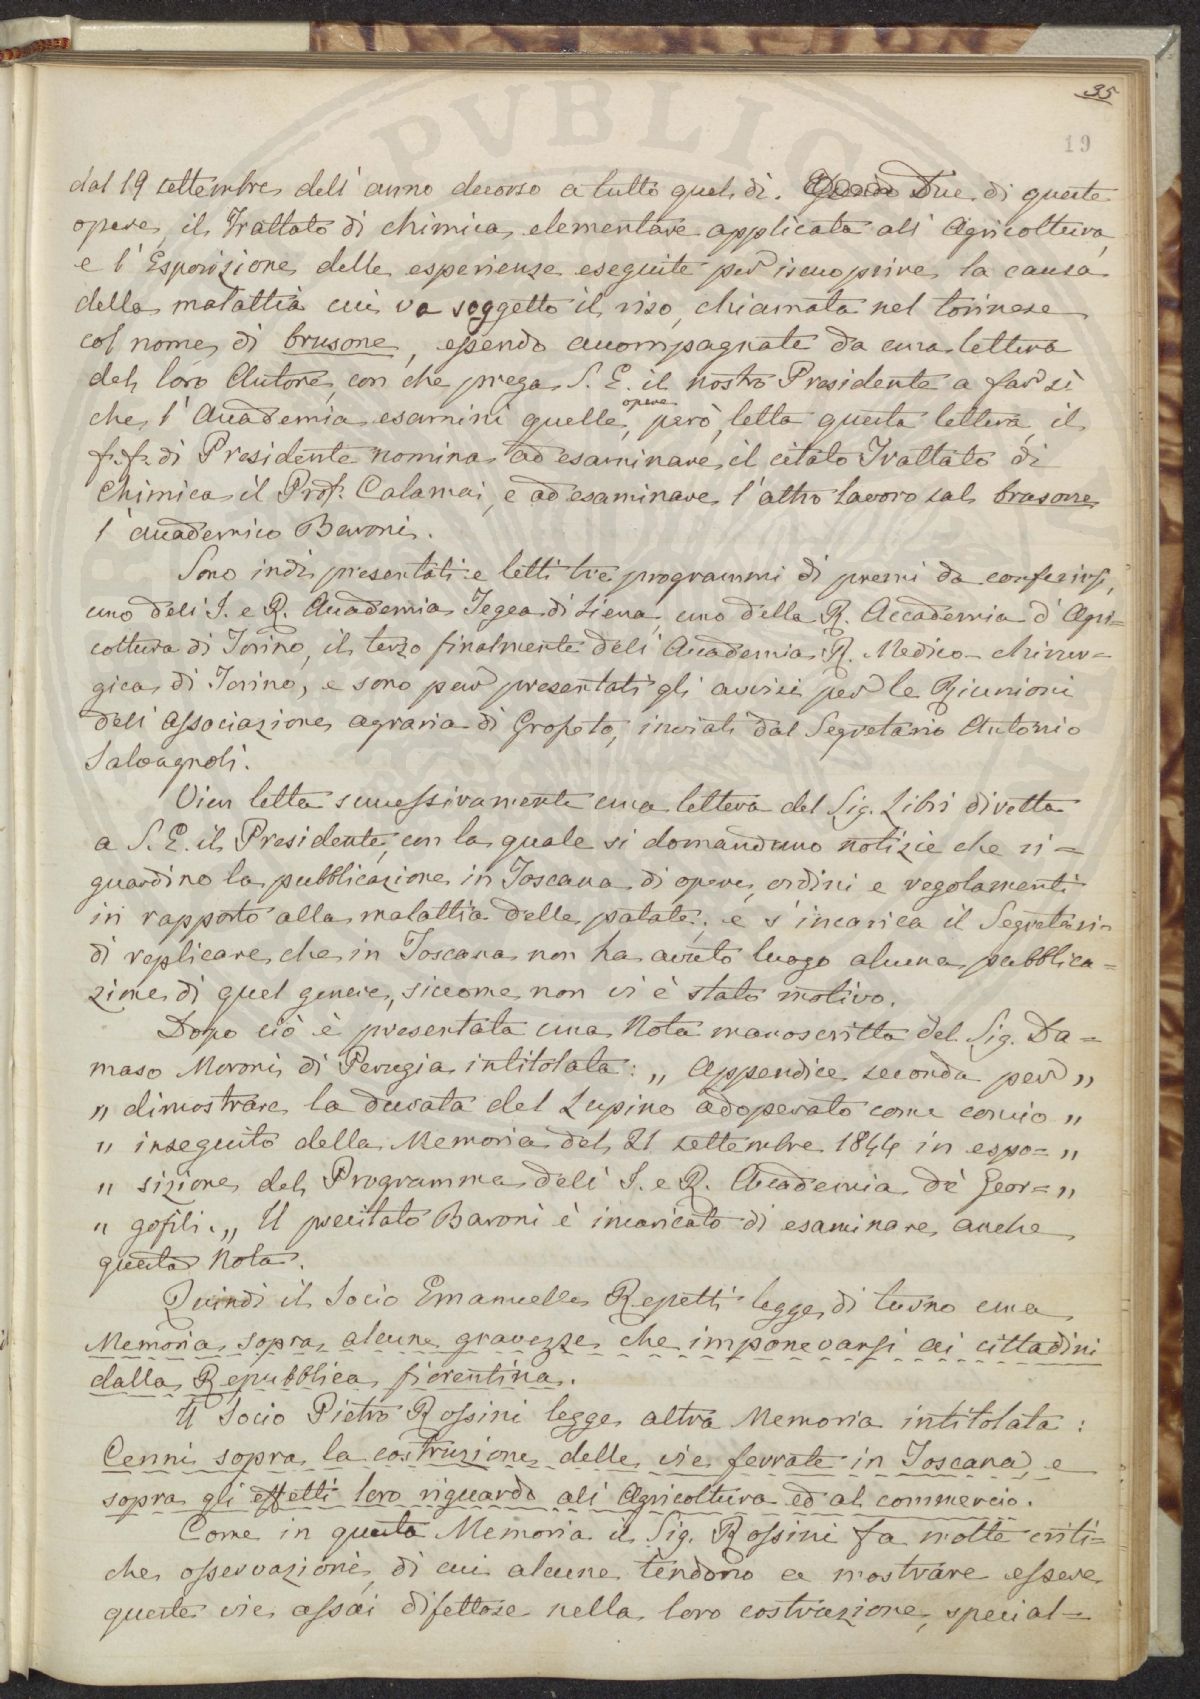 35
19
dal 19 settembre dell' anno decorso a tutto quel dì. Due di queste
opere, il Trattato di chimica elementare applicata all' Agricoltura,
e l' Esposizione delle esperienze eseguite per iscuoprire la causa
della malattia cui va soggetto il riso, chiamata nel torinese
col nome di brusone, essendo accompagnate da una lettera
del loro Autore, con che prega S. E. il nostro Presidente a far sì
che l' Accademia esamini quelle opere, però, letta questa lettera, il
ff. di Presidente nomina ad esaminare il citato Trattato di
Chimica il Prof. Calamai, e ad esaminare l' altro lavoro sul brusone
l' accademico Baroni.
Sono indi presentati e letti tre programmi di premi da conferirsi,
uno dell' I. e R. Accademia Tegea di Siena, uno della R. Accademia d' Agri=
coltura di Torino, il terzo finalmente dell' Accademia R. Medico-chirur=
gica di Torino, e sono pur presentati gli avvisi per le Riunioni
dell' associazione agraria di Grosseto, inviati dal Segretario Antonio
Salvagnoli.
Vien letta successivamente una lettera del Sig. Libri diretta
a S. E. il Presidente, con la quale si domandano notizie che ri=
guardino la pubblicazione in Toscana di opere, ordini e regolamenti
in rapporto alla malattia delle patate; e s' incarica il Segretario
di replicare che in Toscana non ha avuto luogo alcuna pubblica=
zione di quel genere, siccome non vi è stato motivo.
Dopo ciò è presentata una Nota manoscritta del Sig. Da=
maso Moroni di Perugia intitolata: „ Appendice seconda per „
„ dimostrare la durata del Lupino adoperato come concio „
„ inseguito della Memoria del 21 settembre 1844 in espo= „
„ sizione del Programma dell' I. e R. Accademia de' Geor= „
„ gofili. „ Il precitato Baroni è incaricato di esaminare anche
questa Nota.
Quindi il Socio Emanuelle Repetti legge di turno una
Memoria sopra alcune gravezze che imponevansi ai cittadini
dalla Repubblica fiorentina.
Il Socio Pietro Rossini legge altra Memoria intitolata:
Cenni sopra la costruzione delle vie ferrate in Toscana, e
sopra gli effetti loro riguardo all' Agricoltura ed al commercio.
Come in questa Memoria il Sig. Rossini fa molte criti=
che osservazioni, di cui alcune tendono a mostrare essere
queste vie assai difettose nella loro costruzione, special=
PVBLIC